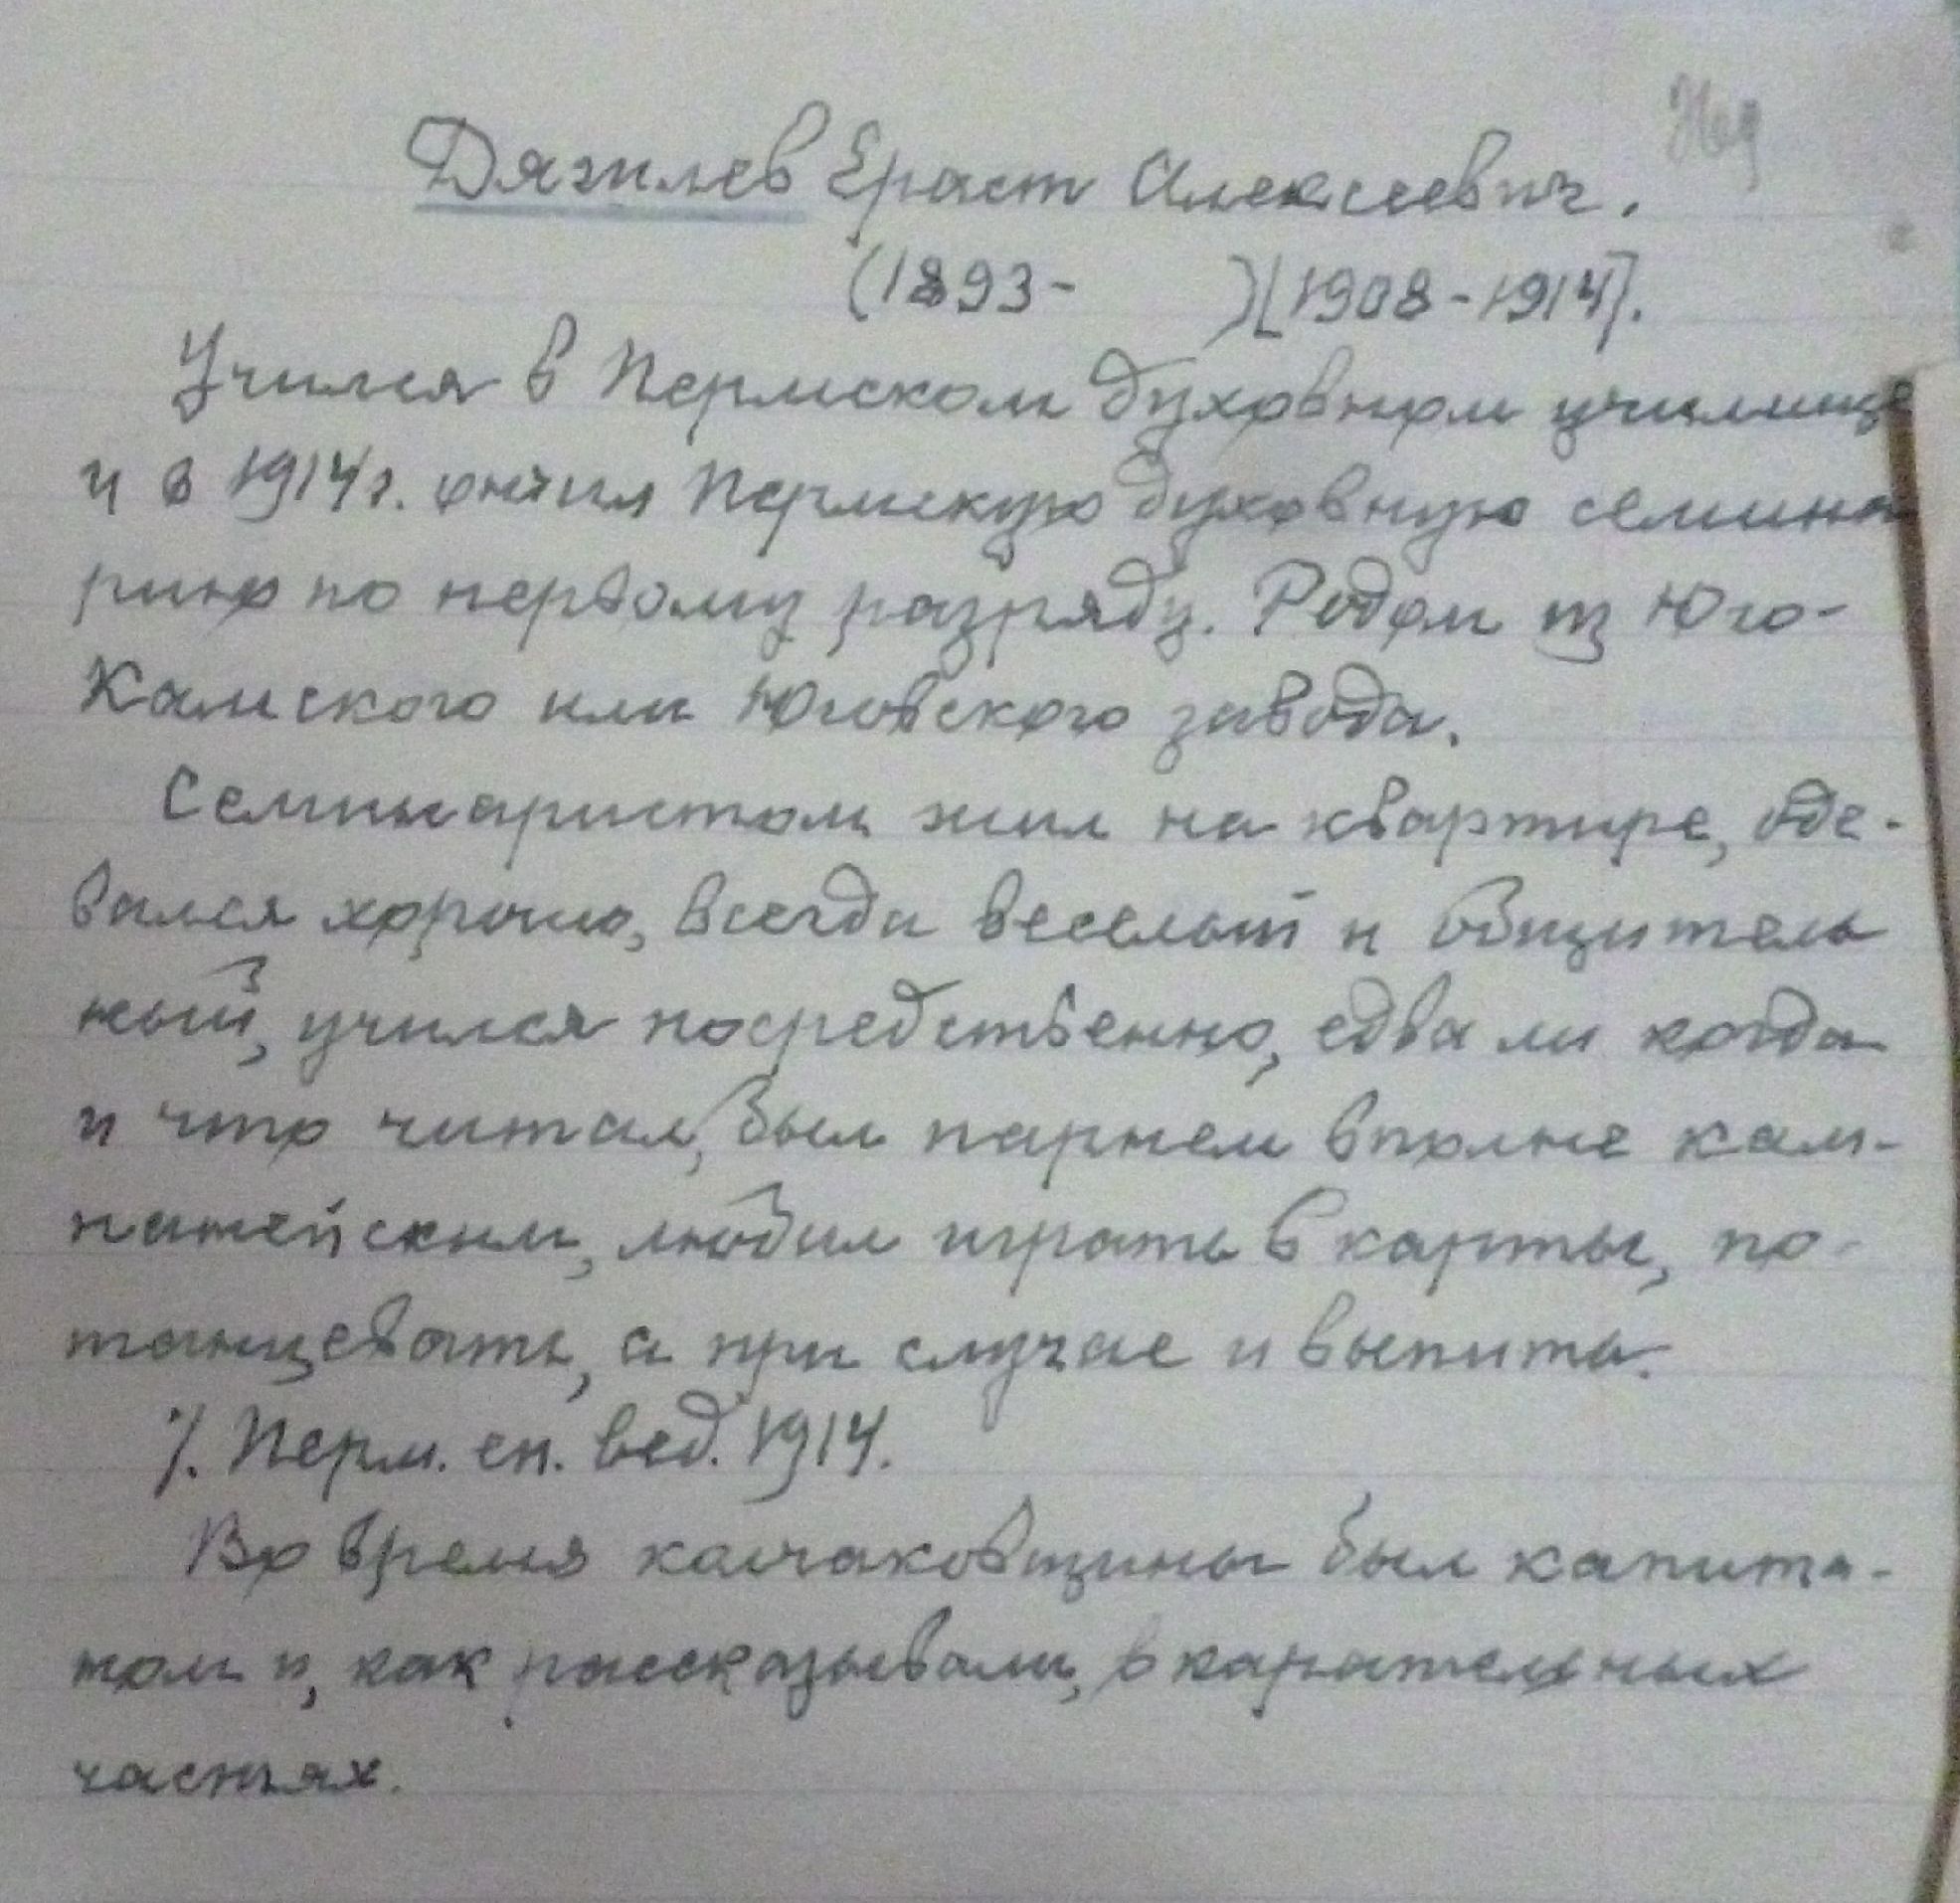 Дягилев Ераст Алексеевич.
(1893- )[1908-1914].
Учился в Пермском духовном училище
и в 1914 г. окончил Пермскую духовную семина
рию по первому разряду. Родом из Юго-
Камского или Юговского завода.
Семинаристом жил на квартире, оде-
вался хорошо, всегда веселый и общитель
ный, учился посредственно, едва ли когда
и что читал, был парнем вполне кам-
панейским, любил играть в карты, по-
танцевать, а при случае и выпить.
Перм. еп. вед. 1914.
Во время колчаковщины был капита-
ном и, как рассказывали, в карательных
частях.